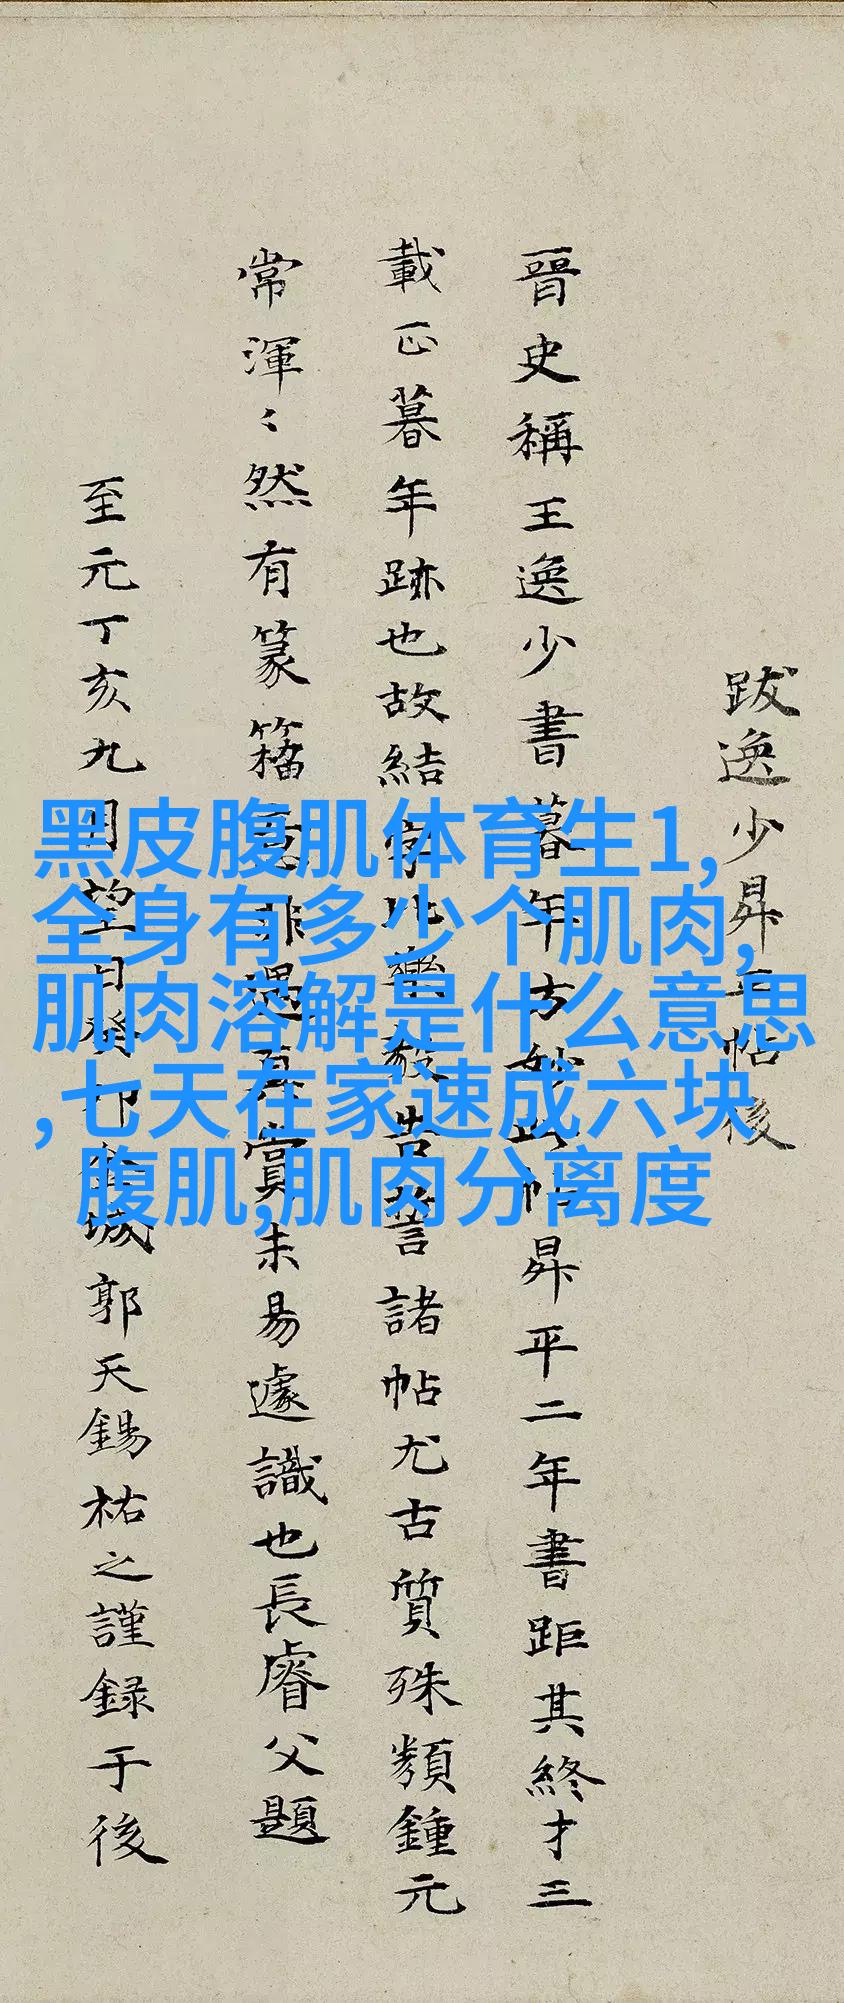 跋逸少昇平帖後
晉史稱王逸少書暮年方妙此帖昇平二年書距其終才三
載正暮年跡也故結字比樂毅告誓諸帖尤古質殊類鍾元
常渾〻然有篆籀意非遇真賞未易遽識也長睿父題
至元丁亥九月望日癸卯金城郭天錫祐之謹録于後
黑皮腹肌体育生1,
全身有多少个肌肉,
肌肉溶解是什么意思
,七天在家速成六块
腹肌,肌肉分离度